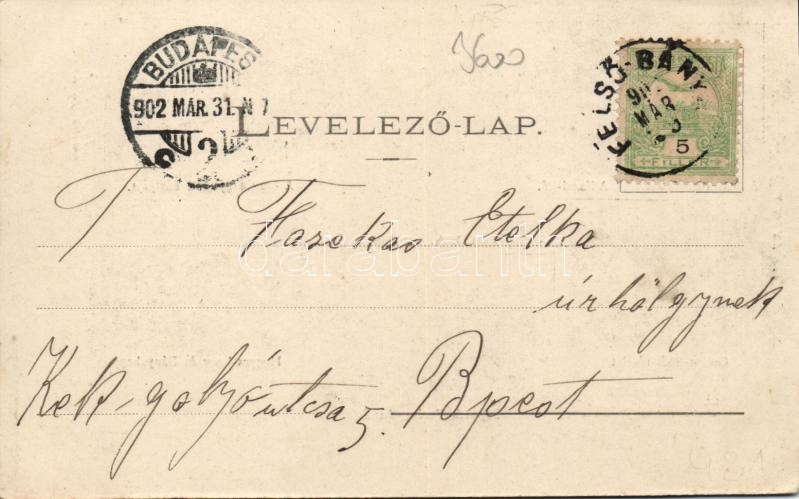 BUDAPES
902 MÁR. 31.
FELSŐ-BÁNY
MÁR
5
FILLÉR
LEVELEZŐ-LAP.
T Fazekas Etelka
úrhölgynek
Kék-golyó utcsa 5. Bpest
darabanth